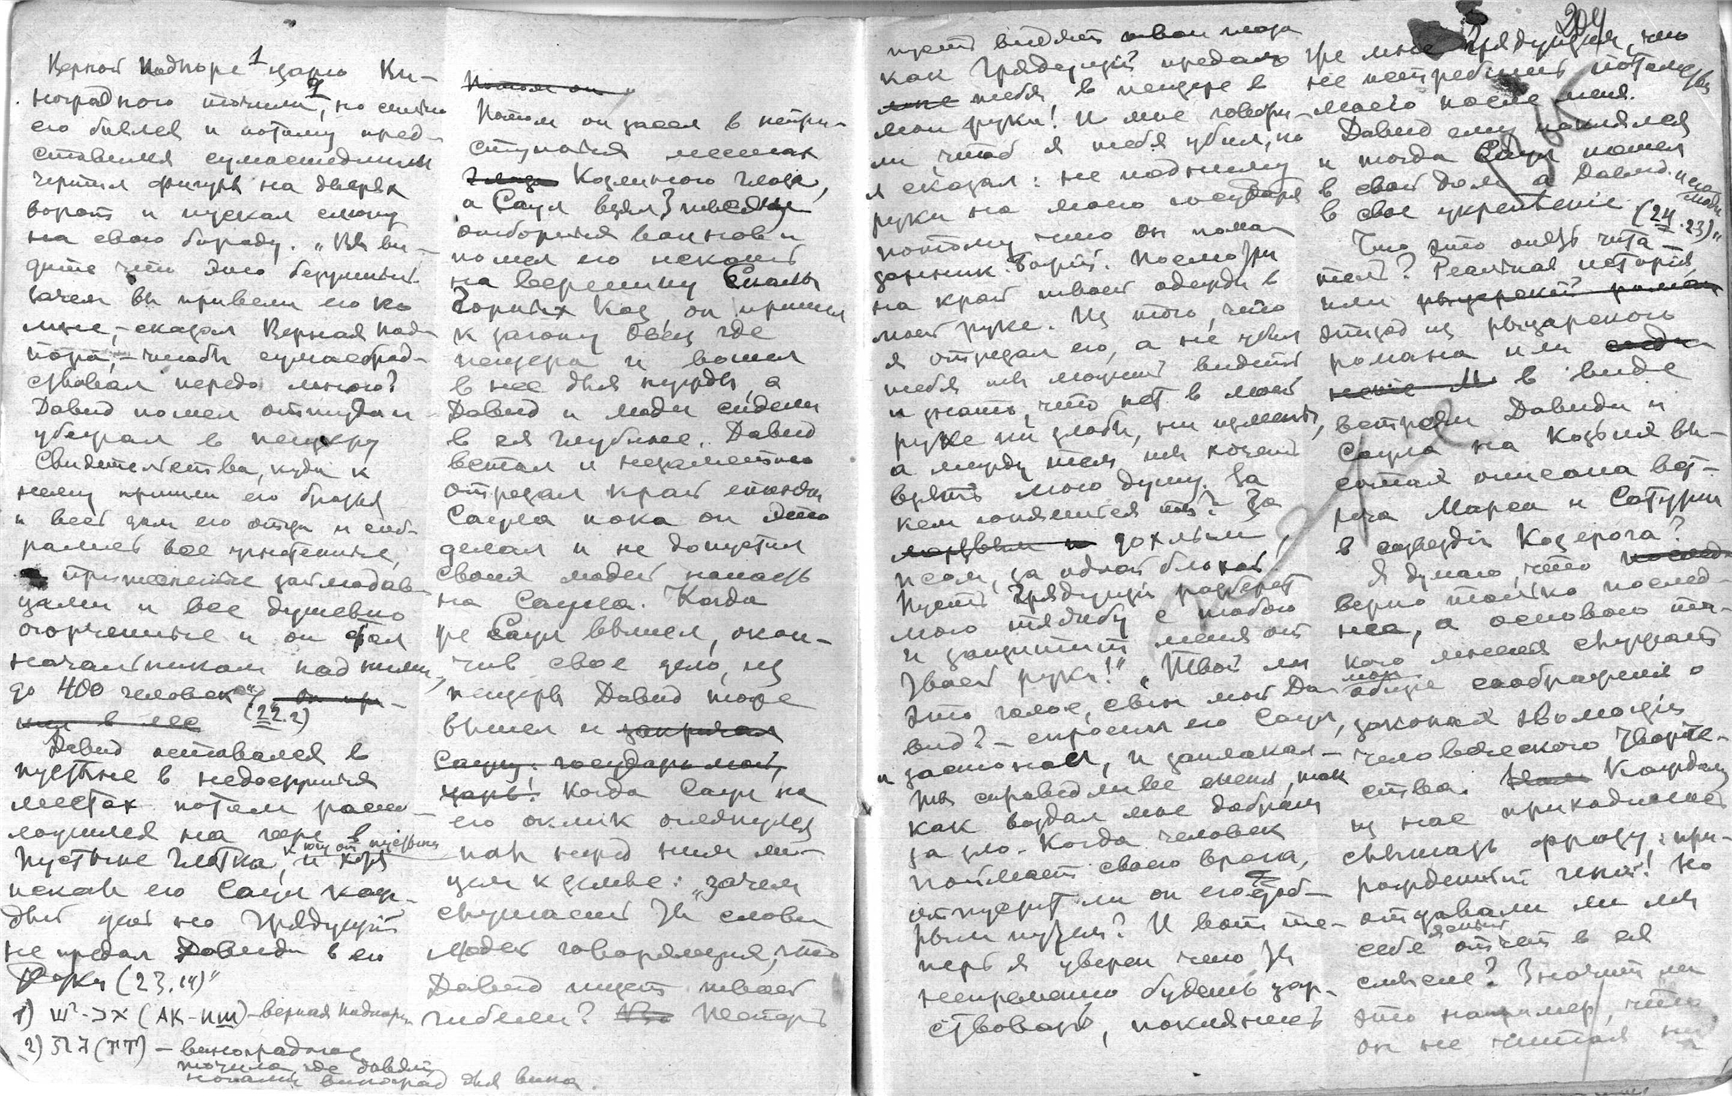 Верной Подпоре¹ царю Ви-
ноградного точила², но слуги
его боялся и потому пред-
ставился сумасшедшим
чертил фигуры на дверях
ворот и пускал слюну
на свою бороду. „Вы ви-
дите что это безумный
зачем вы привели его ко
мне, – сказал Верная Под-
пора, – чтобы сумасброд-
ствовал передо мною?
Давид пошел оттуда и
убежал в пещеру
Свидетельства, куда к
нему пришли его братья
и весь дом его отца и соб-
рались все угнетенные,
притесненные заимодав-
цами и все душевно
огорченные и он стал
начальником над ними,
до 400 человек“
(22.2)
Давид оставался в
пустыне в недоступных
местах потом распо-
ложился на горе в
пустыне к югу от пустыни и хотя
искал его Саул каж-
дый день но Грядущий
не предал Давида в его
руки (23.14)“
1) אכ-יש (АК-ИШ) – верная подпора
2) גת (ГТ) – виноградное
точило, где давили
ногами виноград для вина.
Потом он
Потом он засел в непри-
ступных местах
Козлиного глаза,
а Саул взял 3 тысячи
отборных воинов и
пошел его искать
на вершину Скалы
Горных Коз, он пришел
к загону овец где
пещера и вошел
в нее для нужды, а
Давид и люди сидели
в ея глубине. Давид
встал и незаметно
отрезал край одежды
Саула пока он это
делал и не допустил
своих людей напасть
на Саула. Когда
же Саул вышел, окон-
чив свое дело, из
пещеры Давид тоже
вышел и закричал
Саулу: государь мой,
царь! Когда Саул на
его оклик оглянулся
пал перед ним ли-
цом к земле: „зачем
слушаешь Ты слова
людей говорящих, что
Давид ищет твоей
гибели? Постой
пусть видят твои глаза
как Грядущий предал
тебя в пещере в
мои руки! И мне говори-
ли чтоб я тебя убил, но
я сказал: не подниму
руки на моего государя
потому что он пома-
занник Божий. Посмотри
на край твоей одежды в
моей руке. Из того, что
я отрезал его, а не убил
тебя ты можешь видеть
и знать, что нет в моей
руке ни злобы, ни измены,
а между тем ты хочешь
взять мою душу. За
кем гоняешься ты? За
дохлым
псом, за одной блохой!
Пусть Грядущий разберет
мою тяжбу с тобою
и защитит меня от
Твоей руки!“ „Твой ли
это голос, сын мой Да-
вид? – спросил его Саул,
застонал, и заплакал –
ты справедливее меня, так
как воздал мне добром
за зло. Когда человек
поймает своего врага,
отпустит ли он его доб-
рым путем? И вот те-
перь я уверен что Ты
непременно будешь цар-
ствовать, поклянись
204
же мне Грядущим, что
не истребишь потомства
моего после меня.
Давид ему поклялся
и тогда Саул пошел
в свой дом а Давид и его люди
в свое укрепление (24.23)“
Что это опять чита-
тель? Реальная история
или рыцарский роман
эпизод из рыцарского
романа или
в виде
встречи Давида и
Саула на Козьих вы-
сотах описана вст-
реча Марса и Сатурна
в созвездии Козерога?
Я думаю, что
верно только послед-
нее, а основою та-
кого мнения служат
мои общие соображения о
законах эволюции
человеческого творче-
ства. Каждому
из нас приходилось
слышать фразу: при-
рожденный гений! Но
отдавали ли мы
себе ясный отчет в ея
смысле? Значит ли
это например, что
он не читал ни